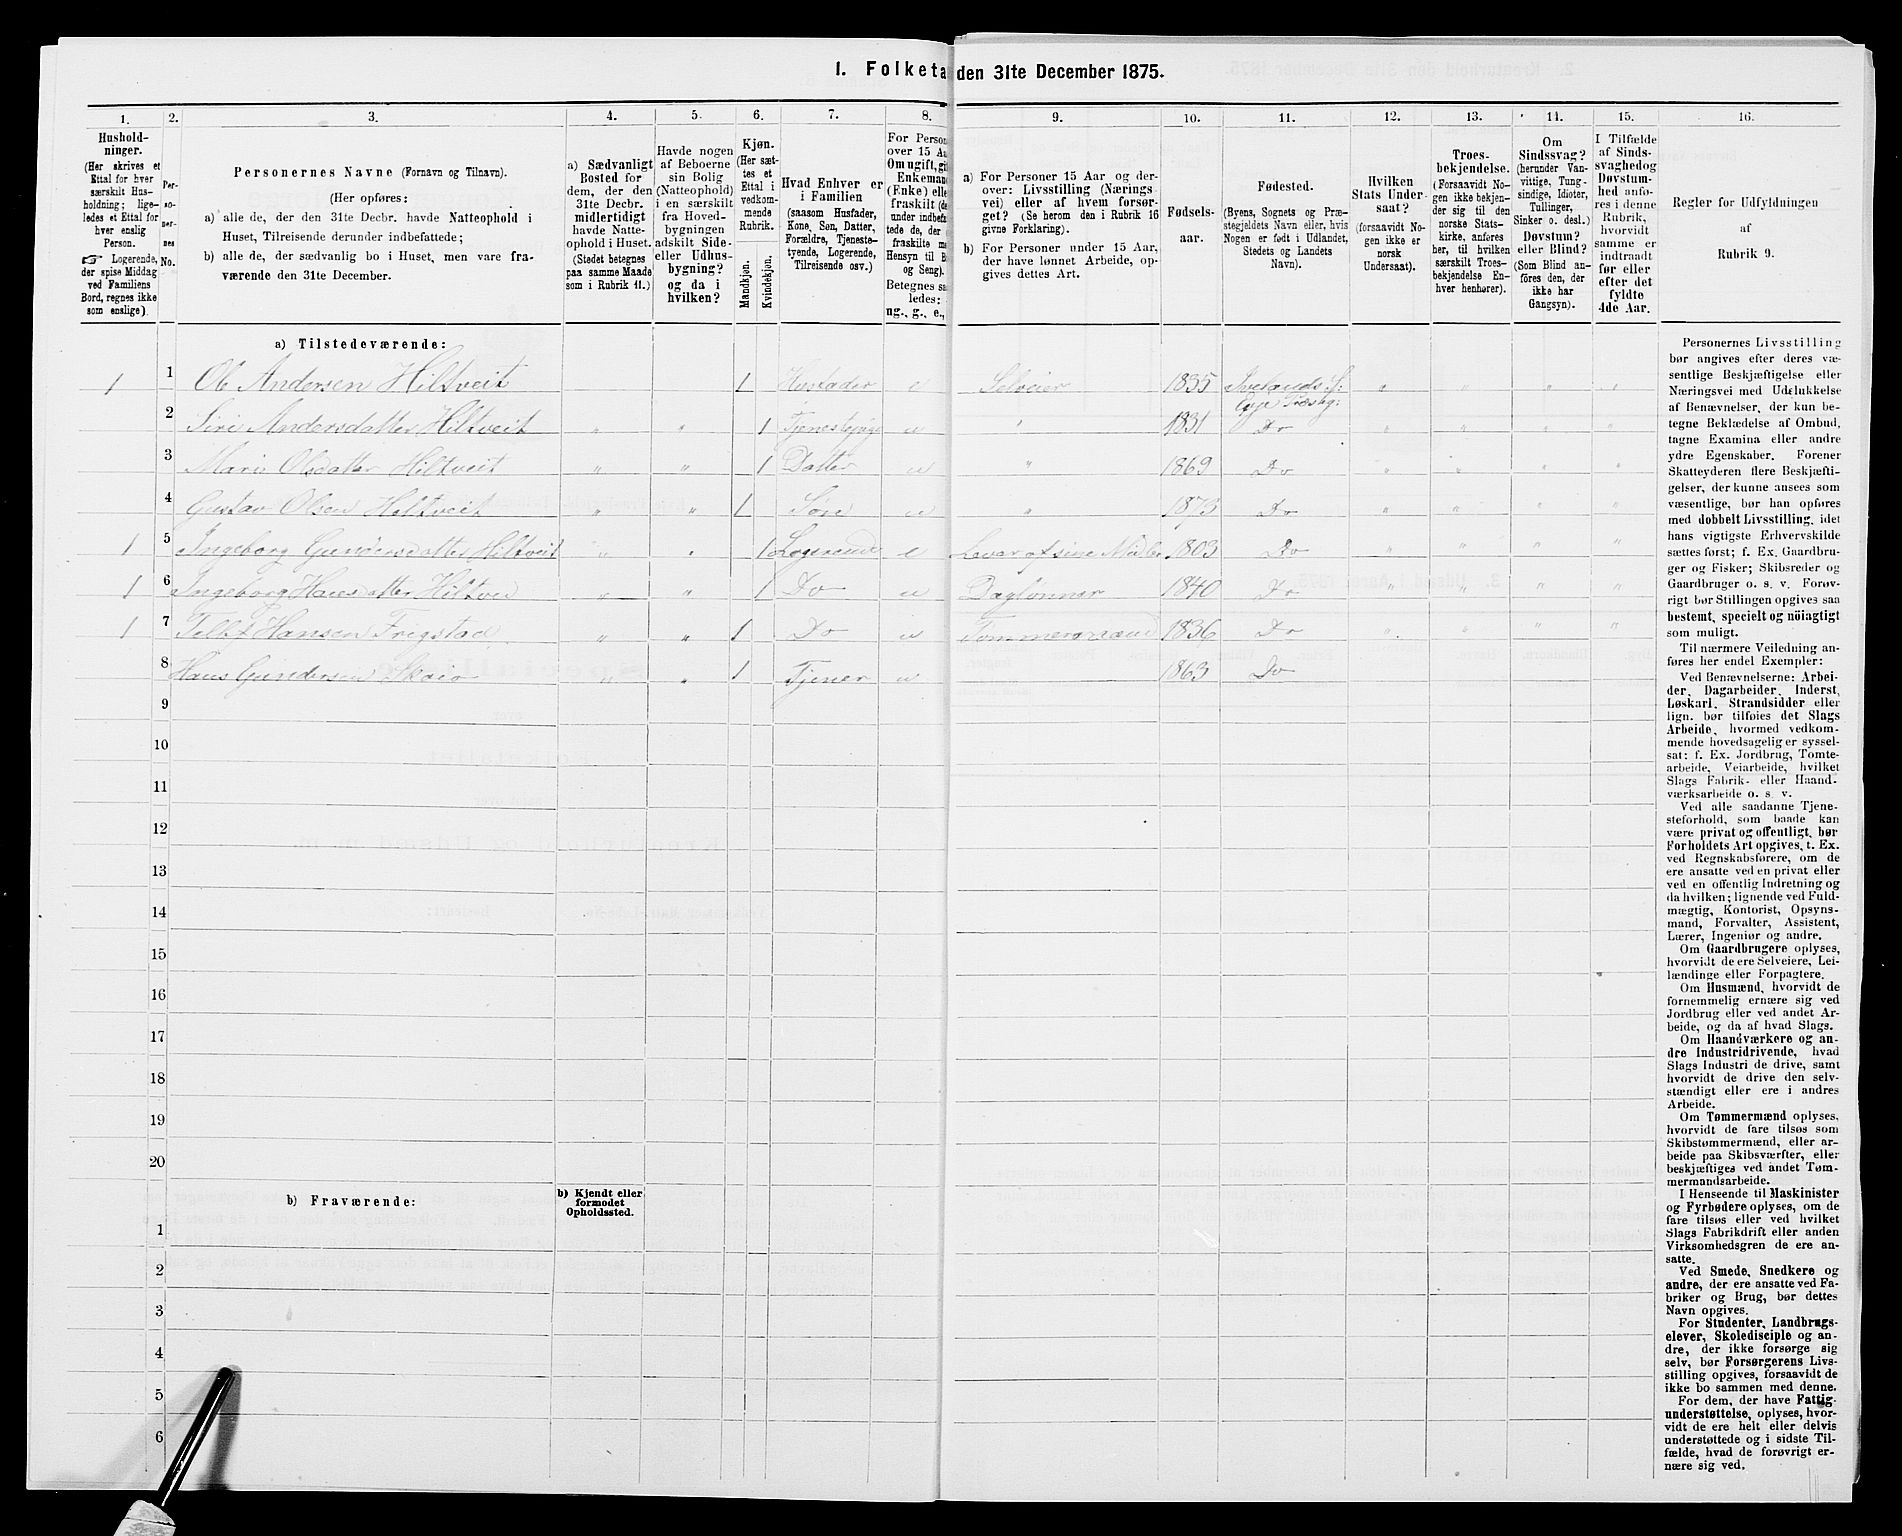 1. Folketa den 31te December 1875.
1. 2. 3. 4. 5. 6. 7. 8. 9. 10. 11. 12. 13. 14. 15. 16.
Hushold-
ninger.
(Her skrives et
Ettal for hver
særskilt Hus-
holdning; lige-
ledes et Ettal for
hver enslig
Person.
☞ Logerende,
der spise Middag
ved Familiens
Bord, regnes ikke
som enslige).
Per-
so-
ner-
nes
No.
Personernes Navne (Fornavn og Tilnavn).
(Her opføres:
a) alle de, der den 31te Decbr. havde Natteophold i
Huset, Tilreisende derunder indbefattede;
b) alle de, der sædvanlig bo i Huset, men vare fra-
værende den 31te December.
a) Sædvanligt
Bosted for
dem, der den
31te Decbr.
midlertidigt
havde Natte-
ophold i Huset.
(Stedet betegnes
paa samme Maade
som i Rubrik 11.)
Havde nogen
af Beboerne
sin Bolig
(Natteophold)
i en særskilt
fra Hoved-
bygningen
adskilt Side-
eller Udhus-
bygning?
og da i
hvilken?
Kjøn.
(Her sæt-
tes et
Ettal i
vedkom-
mende
Rubrik.
Mandkjøn.
Kvindekjøn.
Hvad Enhver er
i Familien
(saasom Husfader,
Kone, Søn, Datter,
Forældre, Tjeneste-
tyende, Logerende,
Tilreisende osv.)
For Person
over 15 Aa
Om ugift, gi
Enkeman
(Enke) elle
fraskilt (de
under indbefa
tede de, der
fraskilte m
Hensyn til B
og Seng).
Betegnes sa
ledes:
ug., g., e.,
a) For Personer 15 Aar og der-
over: Livsstilling (Nærings-
vei) eller af hvem forsør-
get? (Se herom den i Rubrik 16
givne Forklaring).
b) For Personer under 15 Aar,
der have lønnet Arbeide, op-
gives dettes Art.
Fødsels-
aar.
Fødested.
(Byens, Sognets og Præ-
stegjeldets Navn eller, hvis
Nogen er født i Udlandet,
Stedets og Landets
Navn).
Hvilken
Stats Under-
saat?
(forsaavidt No-
gen ikke er
norsk
Undersaat).
Troes-
bekjendelse.
(Forsaavidt No-
gen ikke bekjen-
der sig til den
norske Stats-
kirke, anføres
her, til hvilken
særskilt Troes-
bekjendelse En-
hver henhører).
Om
Sindssvag?
(herunder Van-
vittige, Tung-
sindige, Idioter,
Tullinger,
Sinker o. desl.)
Døvstum?
eller Blind?
(Som Blind an-
føres den, der
ikke har
Gangsyn).
I Tilfælde
af Sinds-
svaghed og
Døvstum-
hed anfø-
res i denne
Rubrik,
hvorvidt
samme er
indtraadt
før eller
efter det
fyldte
4de Aar.
Regler for Udfyldningen
af
Rubrik 9.
a) Tilstedeværende:
1 1 Ole Andersen Hiltveit 1 Husfader e Selveier 1835 Ivelands S:
Evje Præstg:
2 Siri Andersdatter Hiltveit " " 1 u " 1831 Do " " " "
3 Marie Olsdatter Hiltveit " " 1 Datter u " 1869 Do " " " "
4 Gustav Olsen Hiltveit " " 1 Søn u " 1873 Do " " " "
1 5 Ingeborg Gundersdatter Hiltveit " " 1 Logerende e Lever af sine Midler 1803 Do " " " "
1 6 Ingeborg Hansdatter Hiltveit " " 1 Do u Daglønner 1840 Do " " " "
1 7 Hansen Frigstad " " 1 Do u Tømmermand 1836 Do " " " "
8 Hans Gundersen " " 1 Tjener u 1863 Do
9
10
11
12
13
14
15
16
17
18
19
20
b) Fraværende:
b) Kjendt eller
formodet
Opholdssted.
1
2
3
4
5
6
Personernes Livsstilling
bør angives efter deres væ-
sentlige Beskjæftigelse eller
Næringsvei med Udelukkelse
af Benævnelser, der kun be-
tegne Beklædelse af Ombud,
tagne Examina eller andre
ydre Egenskaber. Forener
Skatteyderen flere Beskjæfti-
gelser, der kunne ansees som
væsentlige, bør han opføres
med dobbelt Livsstilling, idet
hans vigtigste Erhvervskilde
sættes først; f. Ex. Gaardbru-
ger og Fisker; Skibsreder og
Gaardbruger o. s. v. Forøv-
rigt bør Stillingen opgives saa
bestemt, specielt og nöiagtigt
som muligt.
Til nærmere Veiledning an-
føres her endel Exempler:
Ved Benævnelserne: Arbei-
der, Dagarbeider, Inderst,
Løskarl, Strandsidder eller
lign. bør tilføies det Slags
Arbeide, hvormed vedkom-
mende hovedsagelig er syssel-
sat: f. Ex. Jordbrug, Tomte-
arbeide, Veiarbeide, hvilket
Slags Fabrik- eller Haand-
værksarbeide o. s. v.
Ved alle saadanne Tjene-
steforhold, som baade kan
være privat og offentligt, bør
Forholdets Art opgives, t. Ex.
ved Regnskabsførere, om de
ere ansatte ved en privat eller
ved en offentlig Indretning og
da hvilken; lignende ved Fuld-
mægtig, Kontorist, Opsyns-
mand, Forvalter, Assistent,
Lærer, Ingeniør og andre.
Om Gaardbrugere oplyses,
hvorvidt de ere Selveiere, Lei-
lændinge eller Forpagtere.
Om Husmænd, hvorvidt de
fornemmelig ernære sig ved
Jordbrug eller ved andet Ar-
beide, og da af hvad Slags.
Om Haandværkere og an-
dre Industridrivende, hvad
Slags Industri de drive, samt
hvorvidt de drive den selv-
stændigt eller ere i andres
Arbeide.
Om Tømmermænd oplyses,
hvorvidt de fare tilsøs som
Skibstømmermænd, eller ar-
beide paa Skibsværfter, eller
beskjæftiges ved andet Tøm-
mermandsarbeide.
I Henseende til Maskinister
og Fyrbødere oplyses, om de
fare tilsøs eller ved hvilket
Slags Fabrikdrift eller anden
Virksomhedsgren de ere an-
satte.
Ved Smede, Snedkere og
andre, der ere ansatte ved Fa-
briker og Brug, bør dettes
Navn opgives.
For Studenter, Landbrugs-
elever, Skoledisciple og an-
dre, der ikke forsørge sig
selv, bør Forsørgerens Livs-
stilling opgives, forsaavidt de
ikke bo sammen med denne.
For dem, der have Fattig-
understøttelse, oplyses, hvor-
vidt de ere helt eller delvis
understøttede og i sidste Til-
fælde, hvad de forøvrigt er-
nære sig ved.